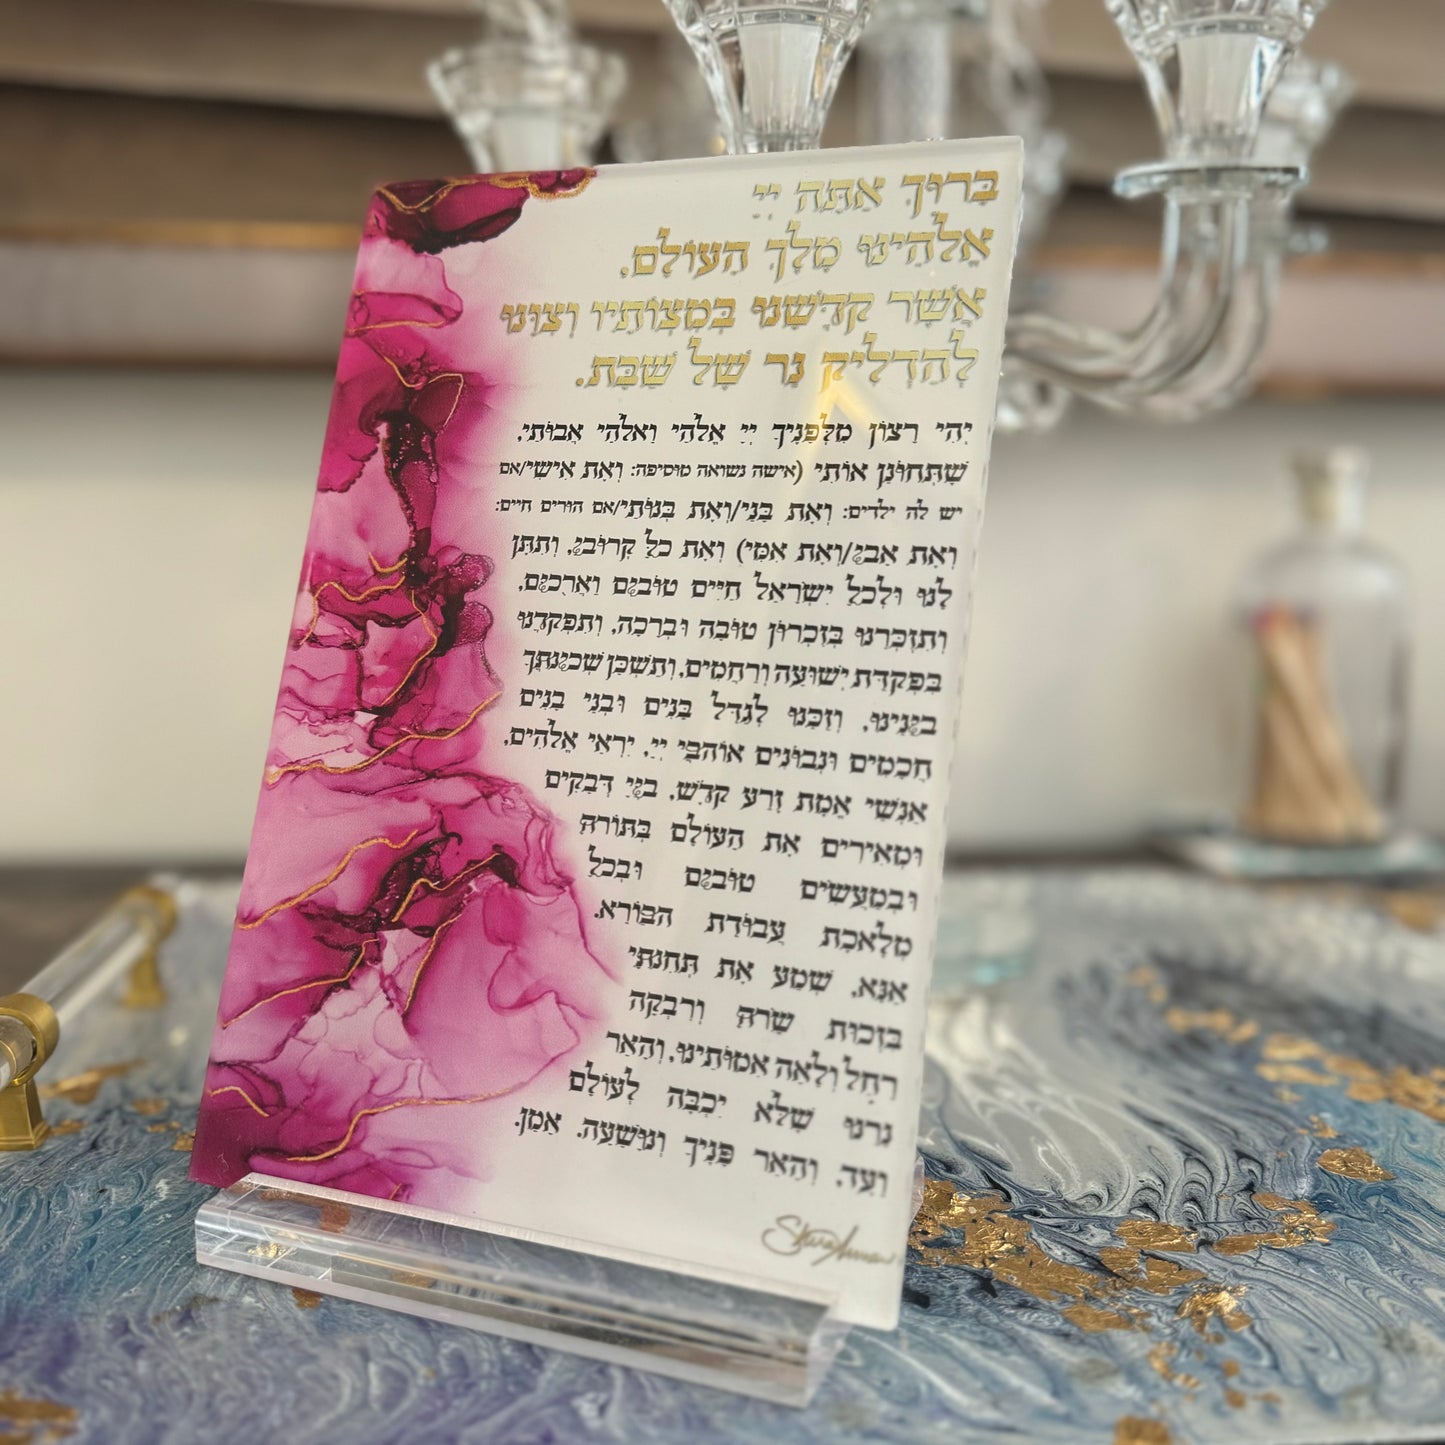 בָּרוּךְ אַתָּה יְיָ
אֱלֹהֵינוּ מֶלֶךְ הָעוֹלָם,
אֲשֶׁר קִדְּשָׁנוּ בְּמִצְוֹתָיו וְצִוָּנוּ
לְהַדְלִיק נֵר שֶׁל שַׁבָּת.
יְהִי רָצוֹן מִלְּפָנֶיךָ יְיָ אֱלֹהַי וֵאלֹהֵי אֲבוֹתַי,
שֶׁתְּחוֹנֵן אוֹתִי (אישה נשואה מוסיפה: וְאֶת אִישִׁי/אם
יש לה ילדים: וְאֶת בָּנַי/וְאֶת בְּנוֹתַי/אם הורים חיים:
וְאֶת אָבִי/וְאֶת אִמִּי) וְאֶת כָּל קְרוֹבַי, וְתִתֵּן
לָנוּ וּלְכָל יִשְׂרָאֵל חַיִּים טוֹבִים וַאֲרֻכִּים,
וְתִזְכְּרֵנוּ בְּזִכְרוֹן טוֹבָה וּבְרָכָה, וְתִפְקְדֵנוּ
בִּפְקֻדַּת יְשׁוּעָה וְרַחֲמִים, וְתַשְׁכֵּן שְׁכִינָתְךָ
בֵּינֵינוּ, וְזַכֵּנוּ לְגַדֵּל בָּנִים וּבְנֵי בָנִים
חֲכָמִים וּנְבוֹנִים אוֹהֲבֵי יְיָ, יִרְאֵי אֱלֹהִים,
אַנְשֵׁי אֱמֶת זֶרַע קֹדֶשׁ, בַּיְיָ דְּבֵקִים
וּמְאִירִים אֶת הָעוֹלָם בַּתּוֹרָה
וּבְמַעֲשִׂים טוֹבִים וּבְכָל
מְלֶאכֶת עֲבוֹדַת הַבּוֹרֵא.
אָנָּא, שְׁמַע אֶת תְּחִנָּתִי
בִּזְכוּת שָׂרָה וְרִבְקָה
רָחֵל וְלֵאָה אִמּוֹתֵינוּ, וְהָאֵר
נֵרֵנוּ שֶׁלֹּא יִכְבֶּה לְעוֹלָם
וָעֶד, וְהָאֵר פָּנֶיךָ וְנִוָּשֵׁעָה. אָמֵן.